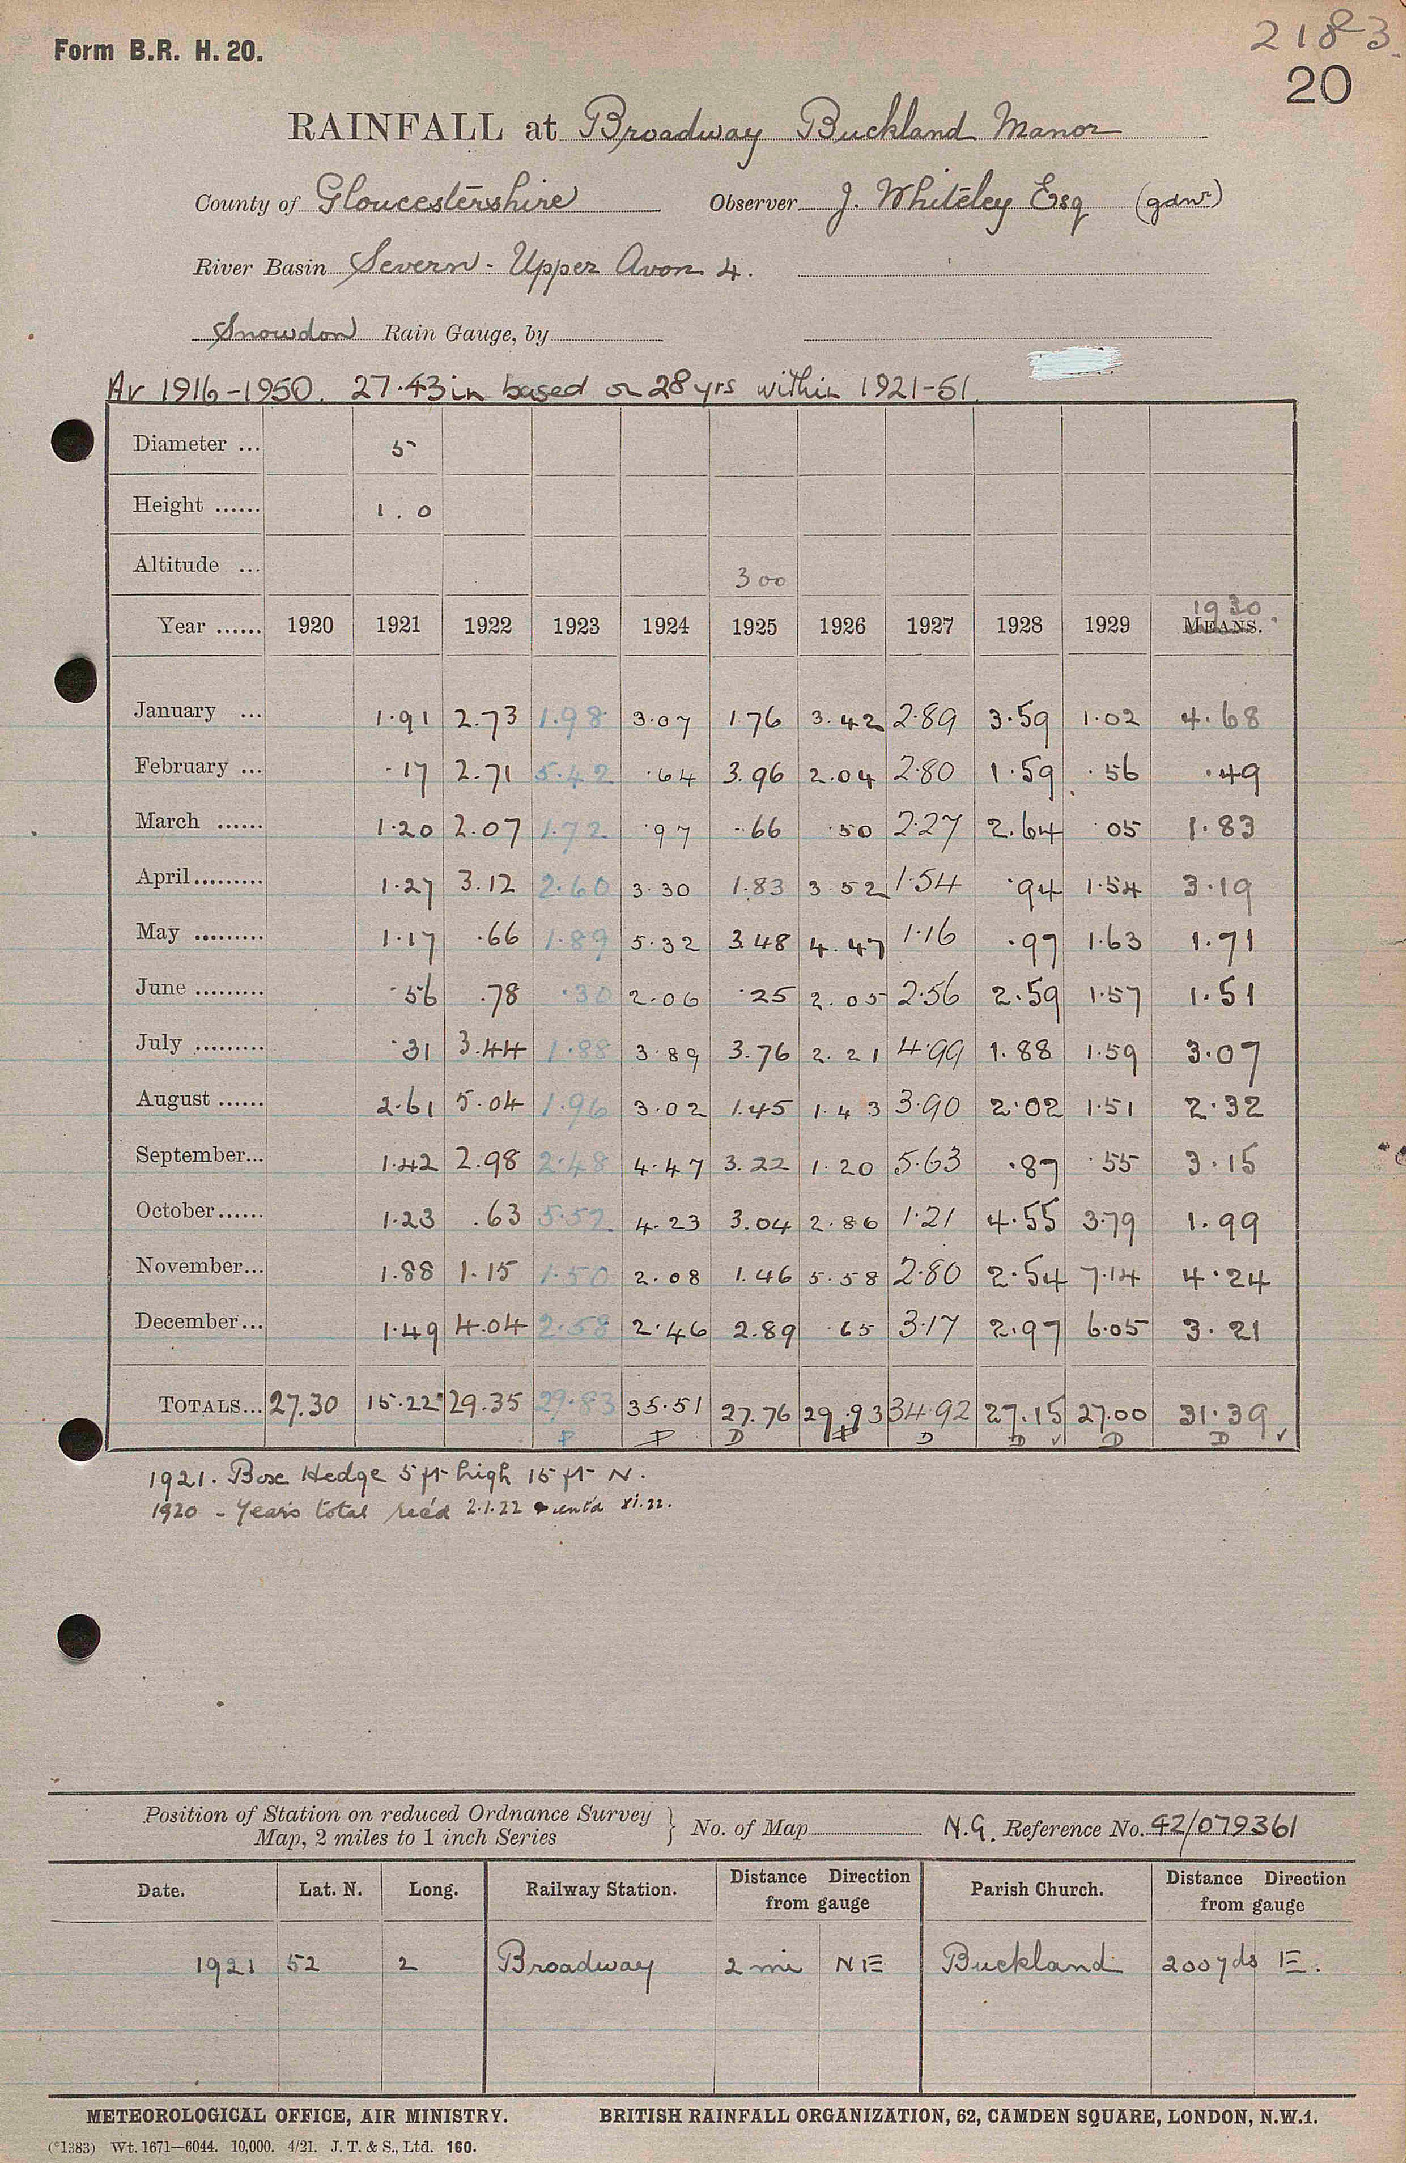 2183
Form B.R. H. 20.
20
RAINFALL at Broadway Buckland Manor
County of Gloucestershire Observer J. Whiteley Esq (gdnr)
River Basin Severn - Upper Avon 4.
Snowdon Rain Gauge, by
Av 1916-1950. 27.43in based on 28 yrs within 1921-51.
Diameter ... 5
Height ...... 1.0
Altitude ... 300
1930
Year ...... 1920 1921 1922 1923 1924 1925 1926 1927 1928 1929 MEANS.
January ... 1.91 2.73 1.98 3.07 1.76 3.42 2.89 3.59 1.02 4.68
February ... .17 2.71 5.42 .64 3.96 2.04 2.80 1.59 .56 .49
March ...... 1.20 2.07 1.72 .97 .66 .50 2.27 2.64 .05 1.83
April......... 1.27 3.12 2.60 3.30 1.83 3.52 1.54 .94 1.54 3.19
May ......... 1.17 .66 1.89 5.32 3.48 4.47 1.16 .97 1.63 1.71
June ......... .56 .78 .30 2.06 .25 2.05 2.56 2.59 1.57 1.51
July ......... .31 3.44 1.88 3.89 3.76 2.21 4.99 1.88 1.59 3.07
August ...... 2.61 5.04 1.96 3.02 1.45 1.43 3.90 2.02 1.51 2.32
September... 1.42 2.98 2.48 4.47 3.22 1.20 5.63 .87 .55 3.15
October...... 1.23 .63 5.52 4.23 3.04 2.86 1.21 4.55 3.79 1.99
November... 1.88 1.15 1.50 2.08 1.46 5.58 2.80 2.54 7.14 4.24
December... 1.49 4.04 2.58 2.46 2.89 .65 3.17 2.97 6.05 3.21
TOTALS... 27.30 15.22 29.35 29.83 35.51 27.76 29.93 34.92 27.15 27.00 31.39
P P D P D D ✓ D D ✓
1921. Box Hedge 5 ft high 15 ft N.
1920 - Year's total rec'd 2.1.22 ent'd XI.22.
Position of Station on reduced Ordnance Survey
Map, 2 miles to 1 inch Series } No. of Map N.G. Reference No. 42/079361
Date. Lat. N. Long. Railway Station. Distance Direction from gauge Parish Church. Distance Direction from gauge
1921 52 2 Broadway 2 mi NE Buckland 200 yds E.
METEOROLOGICAL OFFICE, AIR MINISTRY. BRITISH RAINFALL ORGANIZATION, 62, CAMDEN SQUARE, LONDON, N.W.1.
(*1383) Wt. 1671—6044. 10,000. 4/21. J. T. & S., Ltd. 160.